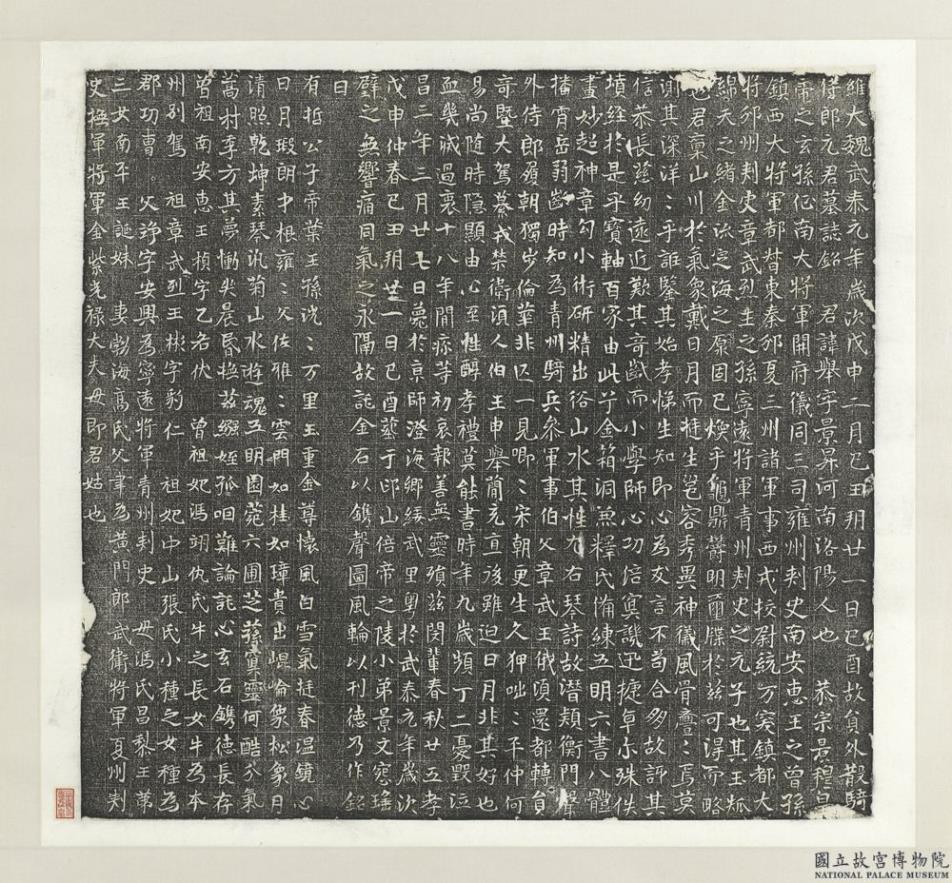 維大魏武泰元年歲次戊申二月己丑朔廿一日己酉故員外散騎
侍郎元君墓誌銘　君諱舉字景昇河南洛陽人也　恭宗景穆皇
帝之玄孫征南大將軍開府儀同三司雍州刺史南安惠王之曾孫
鎮西大將軍都督東秦邠夏三州諸軍事西戎校尉統万突鎮都大
將邠州刺史章武烈王之孫寧遠將軍青州刺史之元子也其玉
綿天之緒金流定海之原固已煥乎龜鼎鬱明爾牒於茲可得而略
也君稟山川於氣象戴日月而挺生岂容秀異神儀風骨亹〻焉莫
測其深洋〻乎誰鑒其始孝悌生知即心為友言不苟合多故評其
信恭長慈幼遠近歎其奇齔而小學師心功倍寔譏迅摭卓尒殊佚
墳經於是乎寶軸百家由此兮金箱洞兼釋氏備練五明六書八體
畫妙超神章勾小術研精出俗山水其性左右琴詩故潛穎衡門聲
播霄岳弱齒時知為青州騎兵參軍事伯父章武王俄頃還都轉員
外侍郎履朝獨步倫華非匹一見唧〻宋朝更生久狎咄〻子仲何
奇暨大駕纂戎禁衛須人伯王申舉簡充直後雖迫日月非其好也
易尚隨時隱顯由心至性醇孝禮莫能書時年九歲頻丁二憂毀泣
血幾滅過裏十八年間痳芓初哀報善無靈殞茲閔輩春秋廿五孝
昌三年三月廿七日薨於京師澄海鄉綏武里粵於武泰元年歲次
戊申仲春己丑朔廿一日己酉葬于邙山倍帝之陵小弟景文窓瑤
檗之無響痛同氣之永隔故託金石以鐫聲圖風輪以刊德乃作銘
曰
有哲公子帝葉王孫洸〻万里玉重金尊懷風白雪氣挺春溫鏡心
日月瑕朗中根雍〻父佐雅〻雲門如桂如璋貴出崐崘象松象月
請照乾坤素琴汎菊山水遊魂五明園菀六圃芝蓀寞靈何酷外氣
蒿村季方其夢慟失晨昏撫茲繈姪孤咽難論託心玄石鐫德長存
曾祖南安惠王楨字乙若伏　曾祖妃馮翊仇氏牛之長女牛為本
州別駕　祖章武烈王彬字豹仁　祖妃中山張氏小種之女種為
郡功曹　父竫字安興為寧遠將軍青州刺史　母馮氏昌黎王第
三女南平王誕妹　妻勃海高氏父聿為黃門郎武衛將軍夏州刺
史撫軍將軍金紫光祿大夫母即君姑也
國立故宮博物院
NATIONAL PALACE MUSEUM